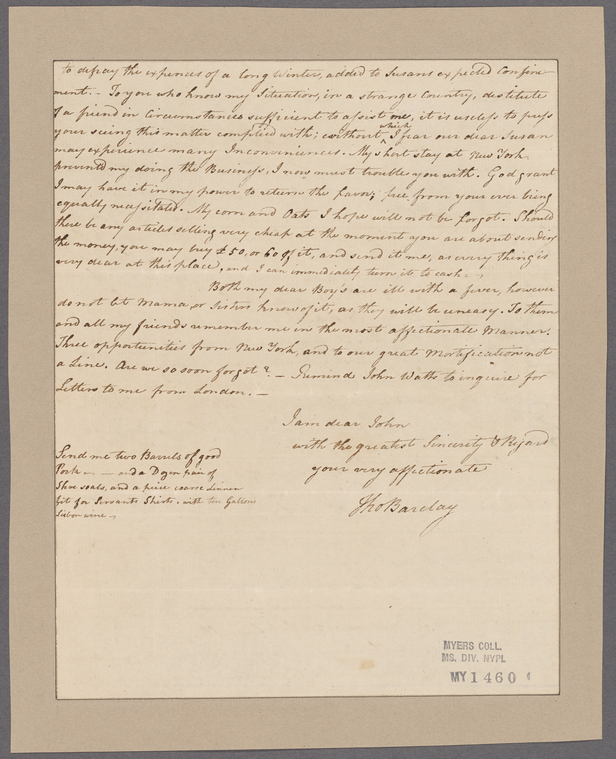 to defray the expences of a long Winter, added to Susans expected Confine-
ment. - To you who know my Situation, in a strange Country, destitute
of a friend in Circumstances sufficient to assist me, it is useless to press
your seeing this matter complied with; without which I fear our dear Susan
may experience many Inconveniences. My short stay at New York
prevented my doing the Business, I now must trouble you with. God grant
I may have it in my power to return the favor; free from your ever being
equally necessitated. My corn and Oats I hope will not be forgot. Should
there be any articles selling very cheap at the moment you are about sending
the money, you may buy £50, or 60 of it, and send it me, as every thing is
very dear at this place, and I can immediately turn it to cash. -
Both my dear Boy's are ill with a fever, however
do not let Mama or Sisters know of it, as they will be uneasy. To them
and all my friends remember me in the most affectionate Manner.
Three opportunities from New York, and to our great Mortification not
a Line. Are we so soon forgot? - Remind John Watts to inquire for
Letters to me from London. -
I am dear John
with the greatest Sincerity & Regard
your very affectionate
Tho Barclay
Send me two Barrels of good
Pork - and a Dozen pair of
Shoe soals, and a piece coarse Linnen
fit for Servants Shirts. with ten Gallons
Lisbon wine -
MYERS COLL.
MS. DIV. NYPL
MY 1460